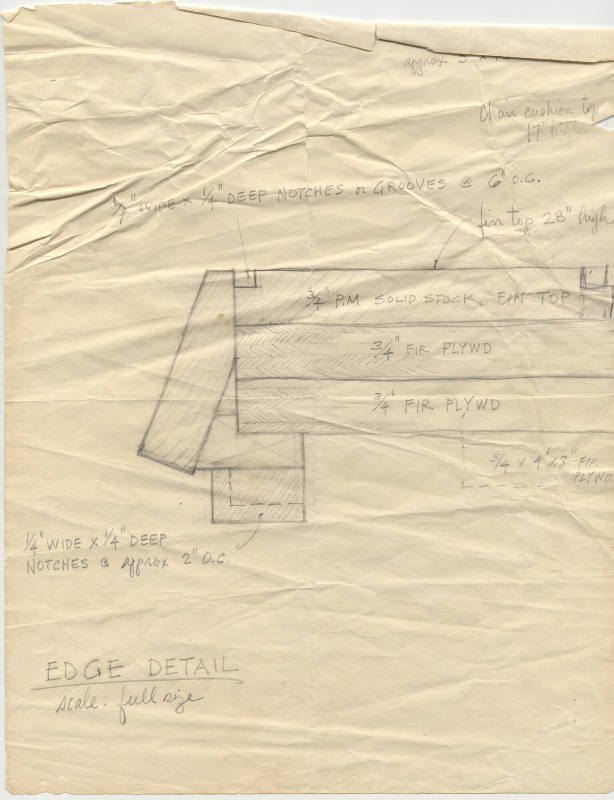 approx 3
Chair cushion top
17" high
1/2" WIDE x 1/4" DEEP NOTCHES or GROOVES @ 6" O.C.
fin top 28" high
3/4" P.M SOLID STOCK. FIN TOP
3/4" FIR PLYWD
3/4" FIR PLYWD
3/4 x 4' x 8" FIR
PLYWD
1/4" WIDE x 1/4" DEEP
NOTCHES @ approx 2" O.C.
EDGE DETAIL
scale: full size